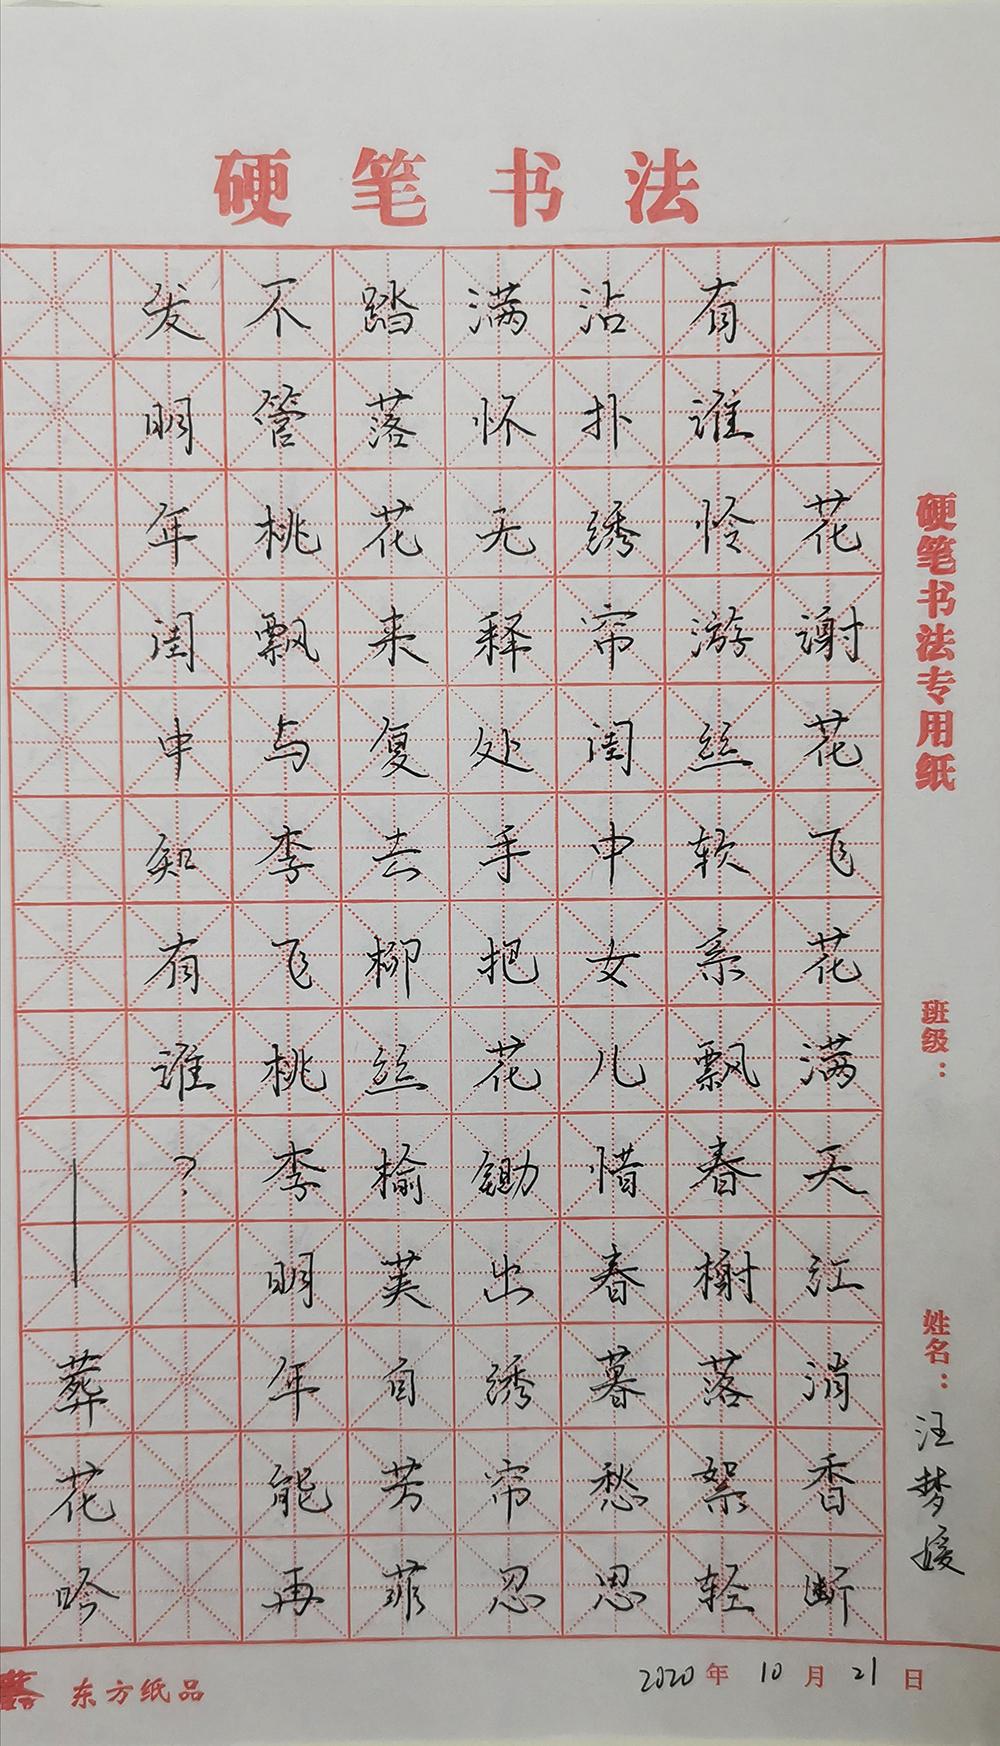 硬笔书法
花谢花飞花满天红消香断
有谁怜游丝软亲飘春榭落絮轻
沾扑绣帘闺中女儿惜春暮愁思
满怀无释处手把花锄出绣帘忍
踏落花来复去柳丝榆荚自芳菲
不管桃飘与李飞桃李明年能再
发明年闺中知有谁?
——葬花吟
硬笔书法专用纸
班级:
姓名:汪梦媛
东方纸品
2020年10月21日